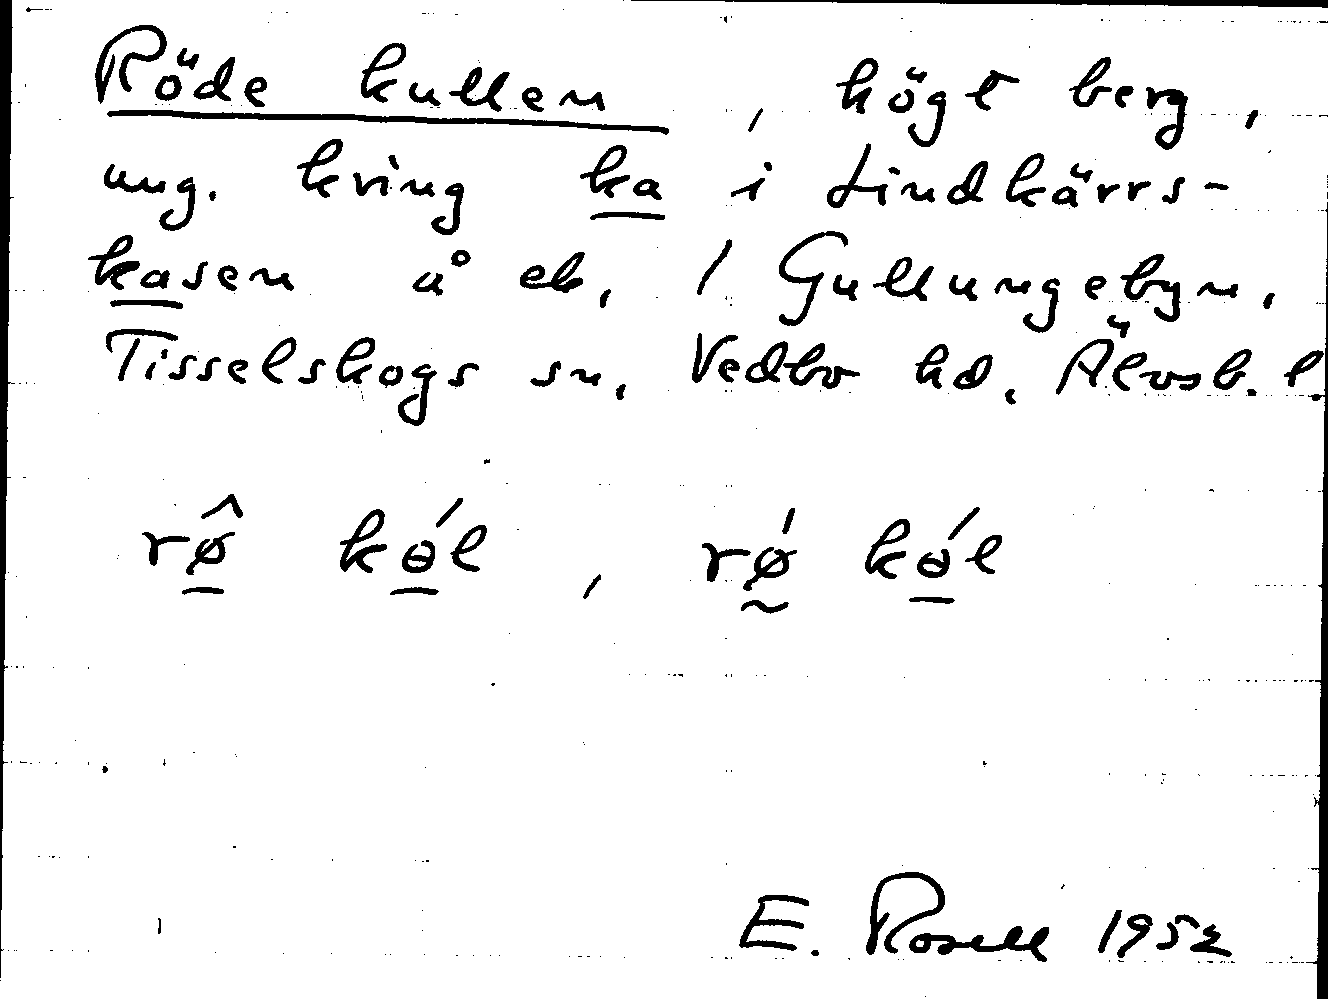 Röde kullen, högt berg,
ung. kring ka i Lindkärrs-
kasen å ek, / Gullungebyn.
Tisselskogs sn, Vedbo hd, Älvsb. l.
rø̂ kɵ́l, rǿ kɵ́l
E. Rosell 1952